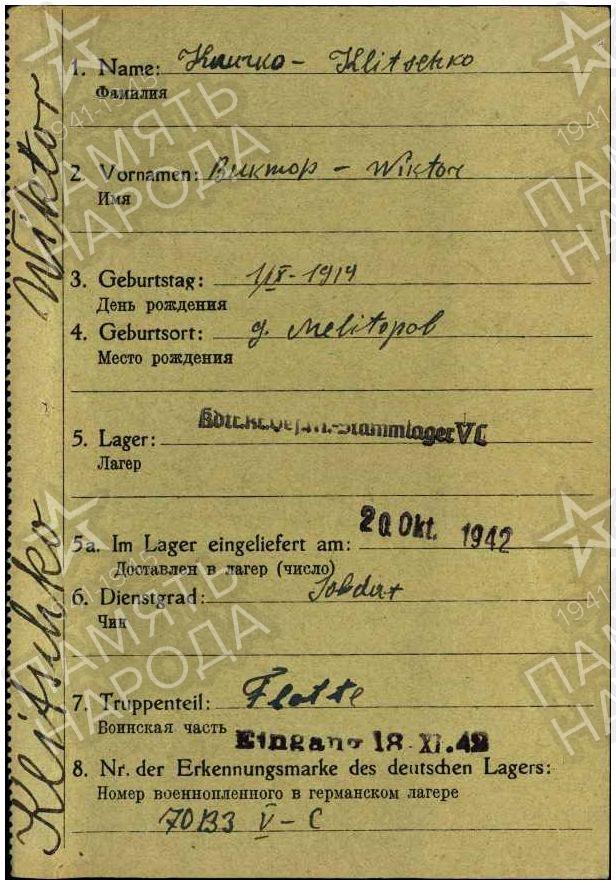 1. Name: Кличко - Klitschko
Фамилия
2. Vornamen: Виктор - Wiktor
Имя
3. Geburtstag: 1914
День рождения
4. Geburtsort: д. Melitopol
Место рождения
5. Lager: Stammlager V C
Лагер
5a. Im Lager eingeliefert am: 20. Okt. 1942
Доставлен в лагер (число)
6. Dienstgrad: Soldat
Чин
7. Truppenteil: Flotte
Воинская часть
Eingang 18. XI. 42
8. Nr. der Erkennungsmarke des deutschen Lagers:
Номер военнопленного в германском лагере
70133 V-C
Klitschko Wiktor
1941-1945
ПАМЯТЬ
НАРОДА